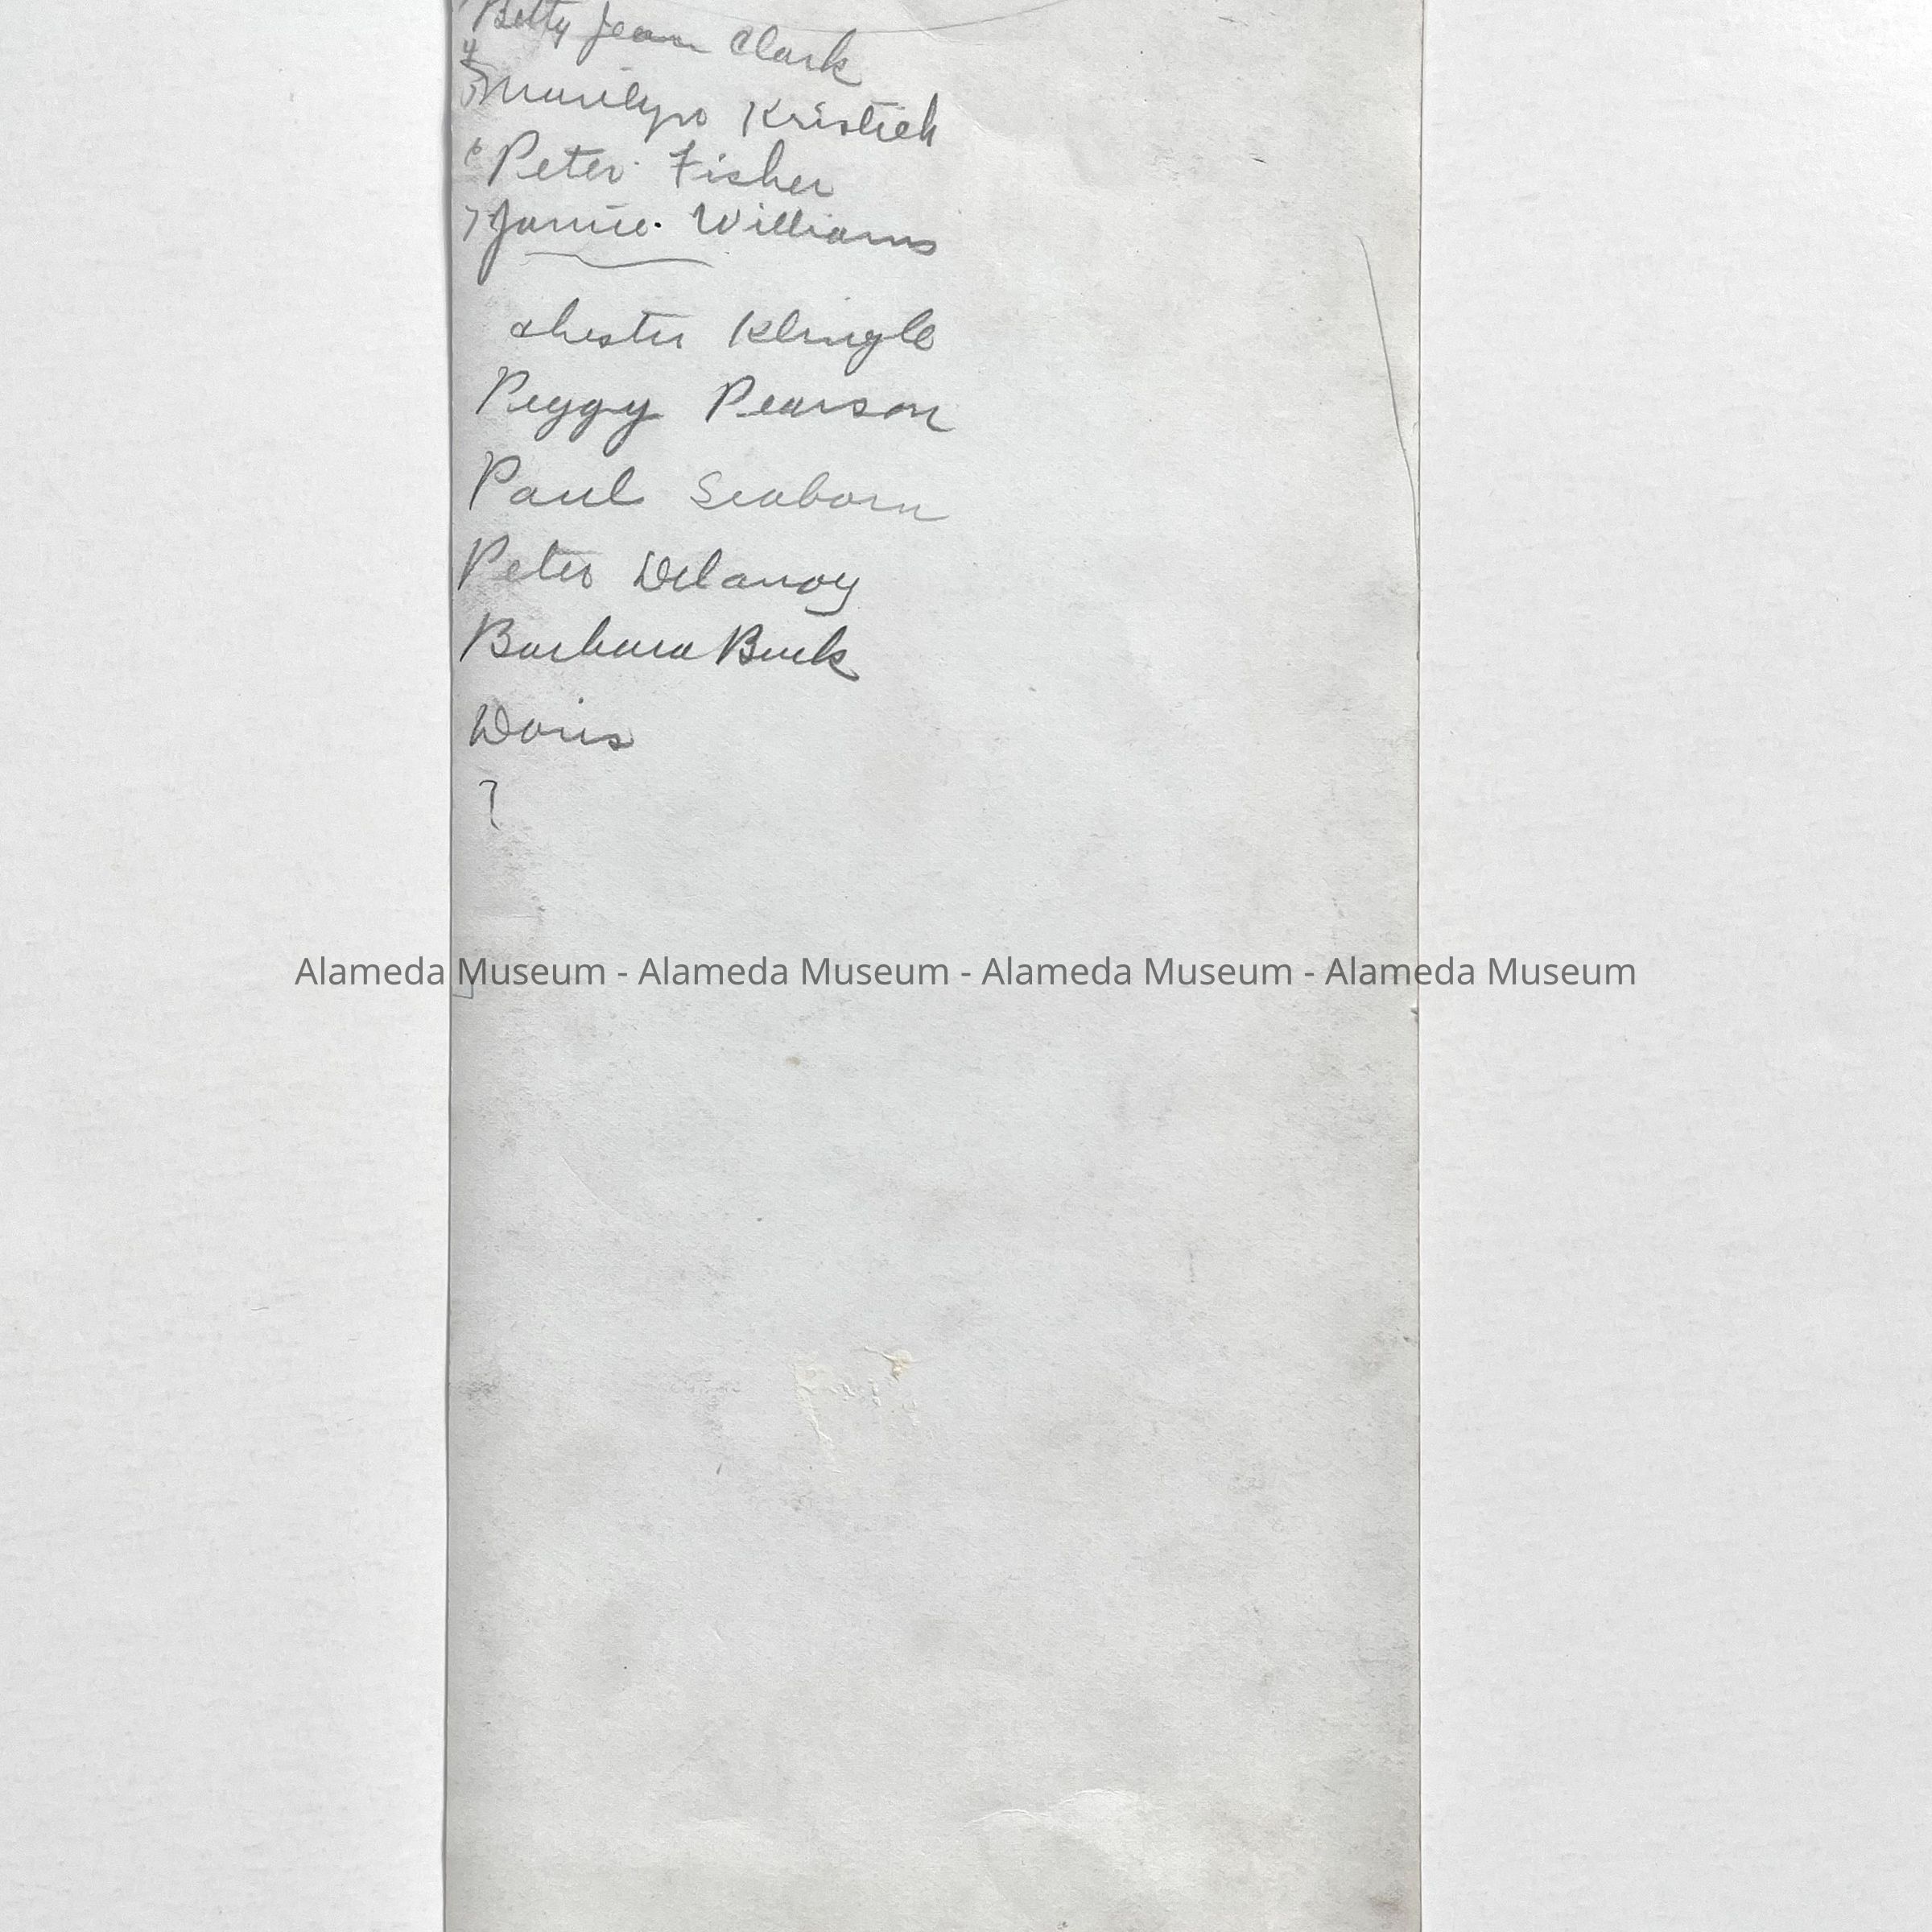 Betty Jean Clark
4
5 Marilyn Kristich
6 Peter Fisher
7 Janice Williams
Chester Klingle
Peggy Pearson
Paul Seaborn
Peter Delanoy
Barbara Buck
Doris
?
Alameda Museum - Alameda Museum - Alameda Museum - Alameda Museum